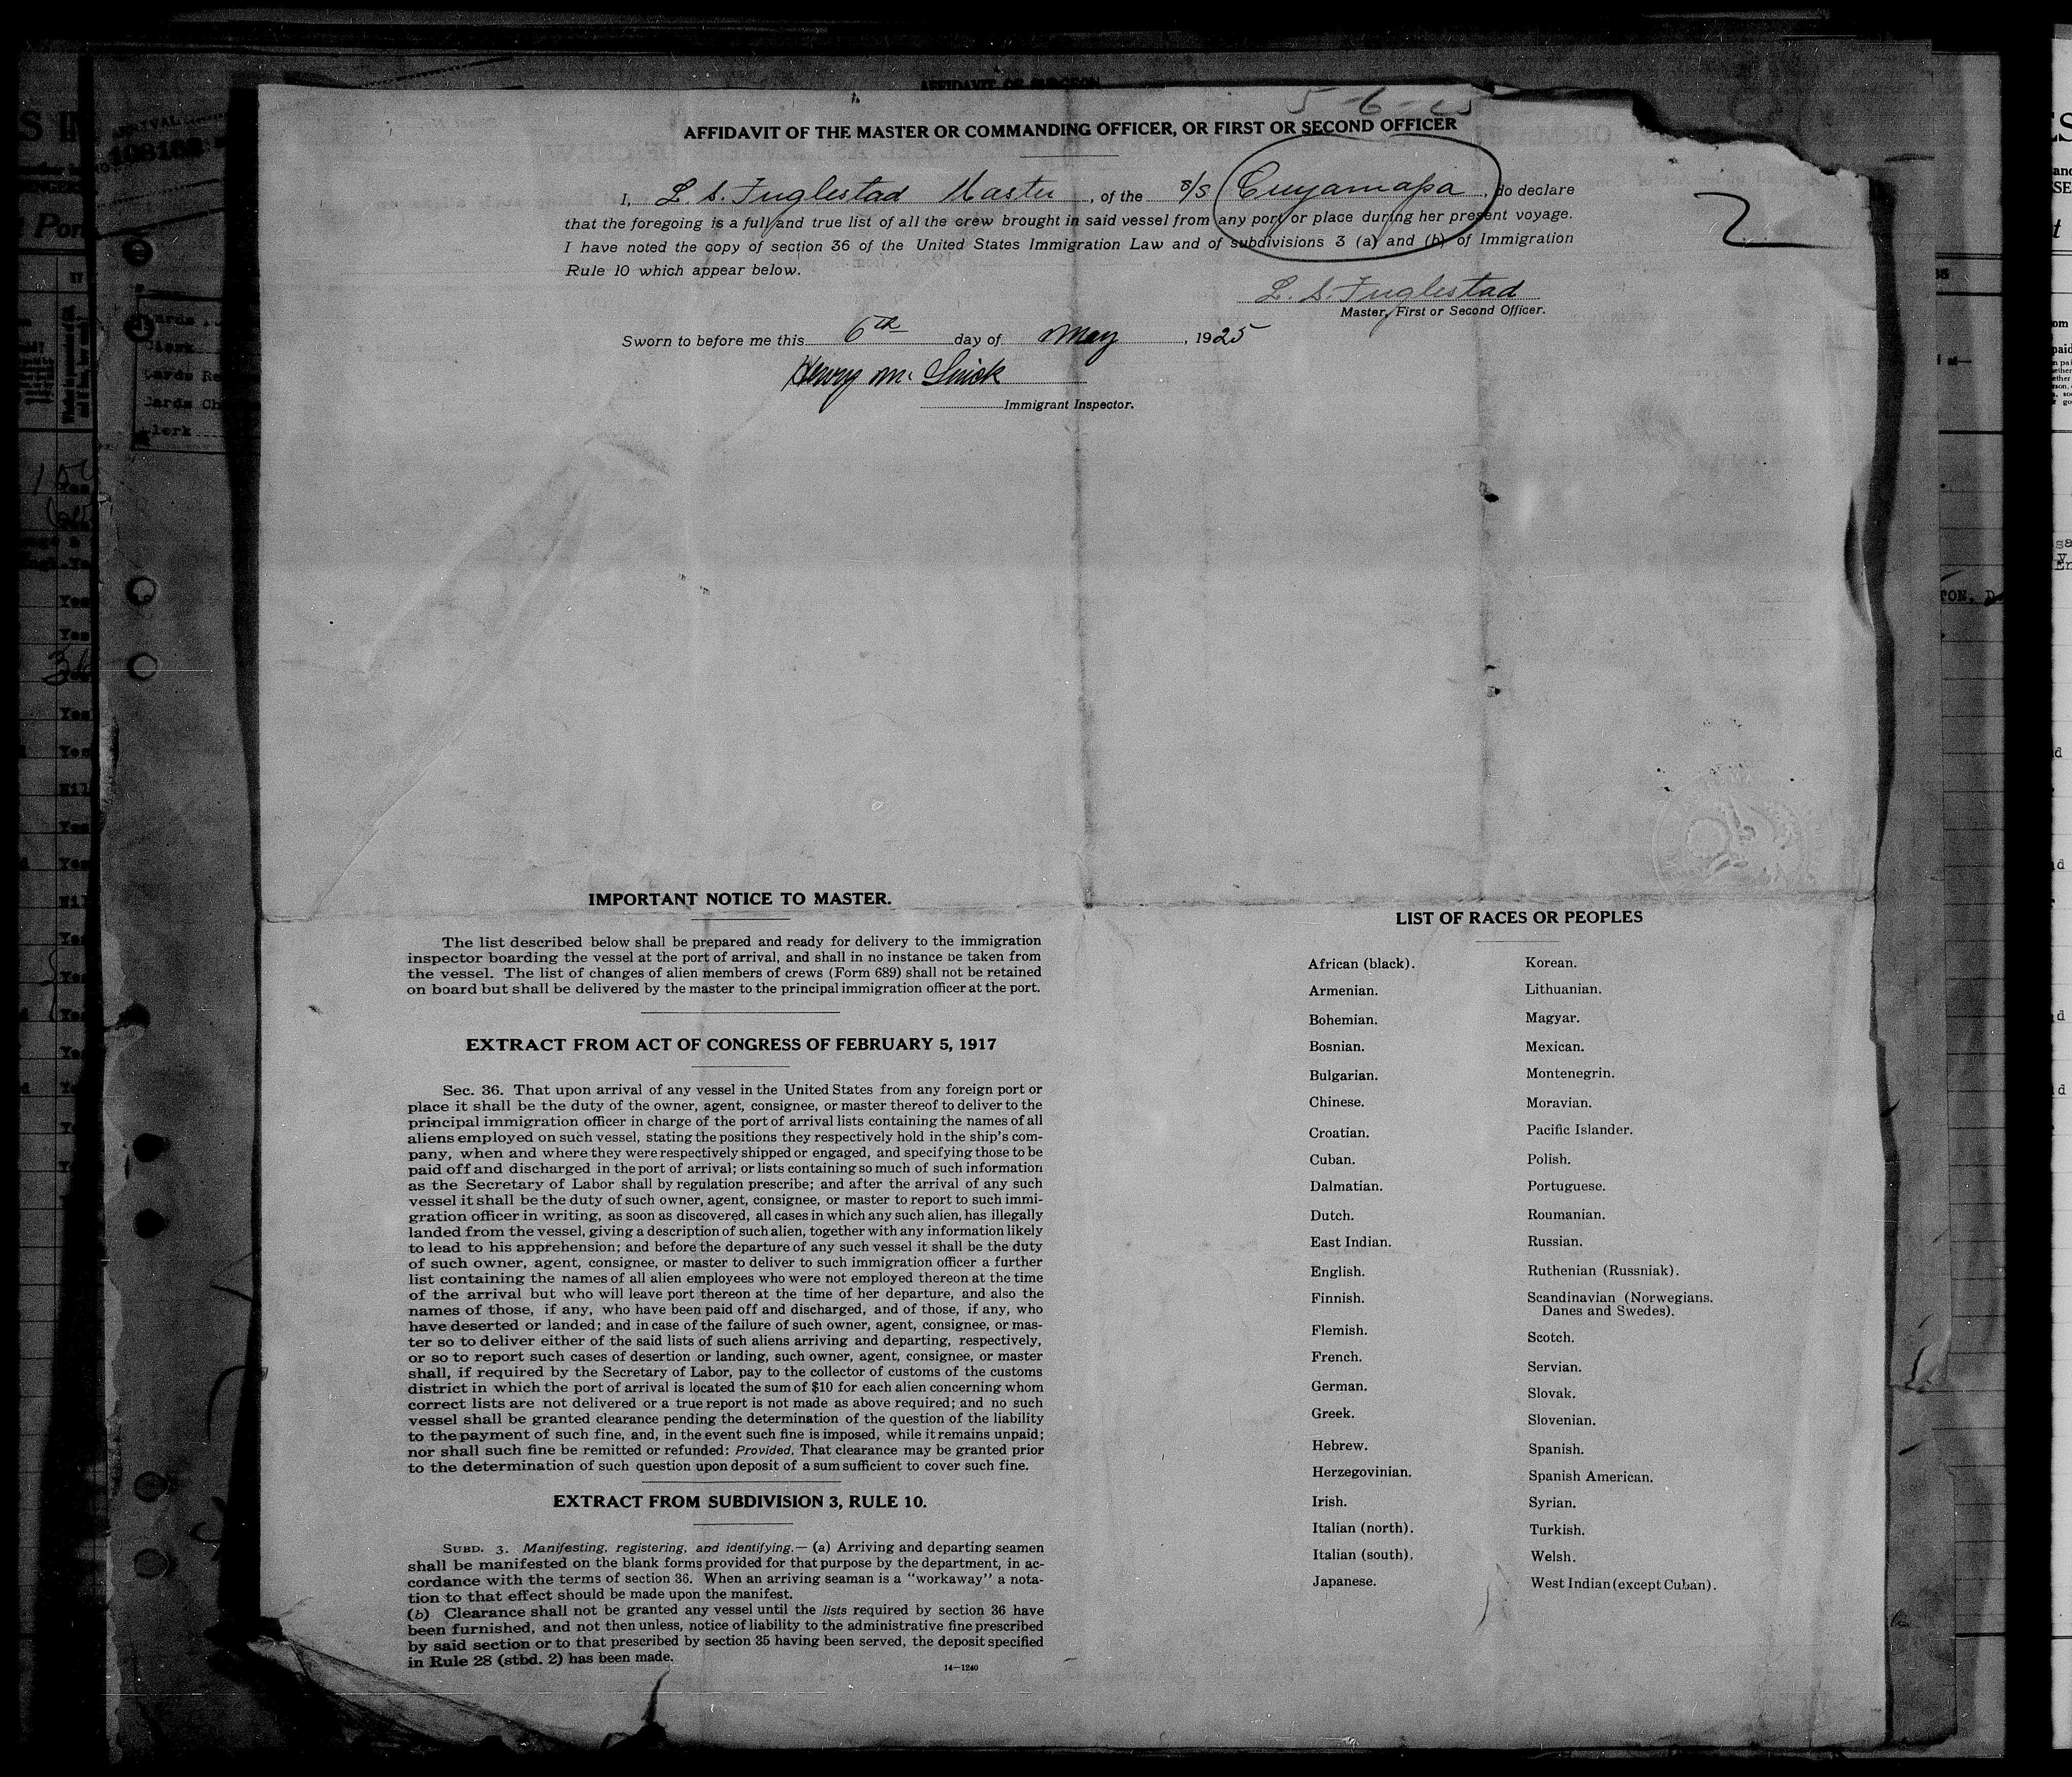 AFFIDAVIT OF SURGEON
5-6-25
AFFIDAVIT OF THE MASTER OR COMMANDING OFFICER, OR FIRST OR SECOND OFFICER
I, L. S. Fuglestad Master, of the s/s Cuyamapa, do declare
that the foregoing is a full and true list of all the crew brought in said vessel from any port or place during her present voyage.
I have noted the copy of section 36 of the United States Immigration Law and of subdivisions 3 (a) and (b) of Immigration
Rule 10 which appear below.
2
L. S. Fuglestad
Master, First or Second Officer.
Sworn to before me this 6th day of May, 1925
Henry M.
Immigrant Inspector.
IMPORTANT NOTICE TO MASTER.
The list described below shall be prepared and ready for delivery to the immigration
inspector boarding the vessel at the port of arrival, and shall in no instance be taken from
the vessel. The list of changes of alien members of crews (Form 689) shall not be retained
on board but shall be delivered by the master to the principal immigration officer at the port.
EXTRACT FROM ACT OF CONGRESS OF FEBRUARY 5, 1917
Sec. 36. That upon arrival of any vessel in the United States from any foreign port or
place it shall be the duty of the owner, agent, consignee, or master thereof to deliver to the
principal immigration officer in charge of the port of arrival lists containing the names of all
aliens employed on such vessel, stating the positions they respectively hold in the ship's com-
pany, when and where they were respectively shipped or engaged, and specifying those to be
paid off and discharged in the port of arrival; or lists containing so much of such information
as the Secretary of Labor shall by regulation prescribe; and after the arrival of any such
vessel it shall be the duty of such owner, agent, consignee, or master to report to such immi-
gration officer in writing, as soon as discovered, all cases in which any such alien, has illegally
landed from the vessel, giving a description of such alien, together with any information likely
to lead to his apprehension; and before the departure of any such vessel it shall be the duty
of such owner, agent, consignee, or master to deliver to such immigration officer a further
list containing the names of all alien employees who were not employed thereon at the time
of the arrival but who will leave port thereon at the time of her departure, and also the
names of those, if any, who have been paid off and discharged, and of those, if any, who
have deserted or landed; and in case of the failure of such owner, agent, consignee, or mas-
ter so to deliver either of the said lists of such aliens arriving and departing, respectively,
or so to report such cases of desertion or landing, such owner, agent, consignee, or master
shall, if required by the Secretary of Labor, pay to the collector of customs of the customs
district in which the port of arrival is located the sum of $10 for each alien concerning whom
correct lists are not delivered or a true report is not made as above required; and no such
vessel shall be granted clearance pending the determination of the question of the liability
to the payment of such fine, and, in the event such fine is imposed, while it remains unpaid;
nor shall such fine be remitted or refunded: Provided, That clearance may be granted prior
to the determination of such question upon deposit of a sum sufficient to cover such fine.
EXTRACT FROM SUBDIVISION 3, RULE 10.
SUBD. 3. Manifesting, registering, and identifying.— (a) Arriving and departing seamen
shall be manifested on the blank forms provided for that purpose by the department, in ac-
cordance with the terms of section 36. When an arriving seaman is a "workaway" a nota-
tion to that effect should be made upon the manifest.
(b) Clearance shall not be granted any vessel until the lists required by section 36 have
been furnished, and not then unless, notice of liability to the administrative fine prescribed
by said section or to that prescribed by section 35 having been served, the deposit specified
in Rule 28 (stbd. 2) has been made.
14—1240
LIST OF RACES OR PEOPLES
African (black).
Armenian.
Bohemian.
Bosnian.
Bulgarian.
Chinese.
Croatian.
Cuban.
Dalmatian.
Dutch.
East Indian.
English.
Finnish.
Flemish.
French.
German.
Greek.
Hebrew.
Herzegovinian.
Irish.
Italian (north).
Italian (south).
Japanese.
Korean.
Lithuanian.
Magyar.
Mexican.
Montenegrin.
Moravian.
Pacific Islander.
Polish.
Portuguese.
Roumanian.
Russian.
Ruthenian (Russniak).
Scandinavian (Norwegians.
Danes and Swedes).
Scotch.
Servian.
Slovak.
Slovenian.
Spanish.
Spanish American.
Syrian.
Turkish.
Welsh.
West Indian (except Cuban).